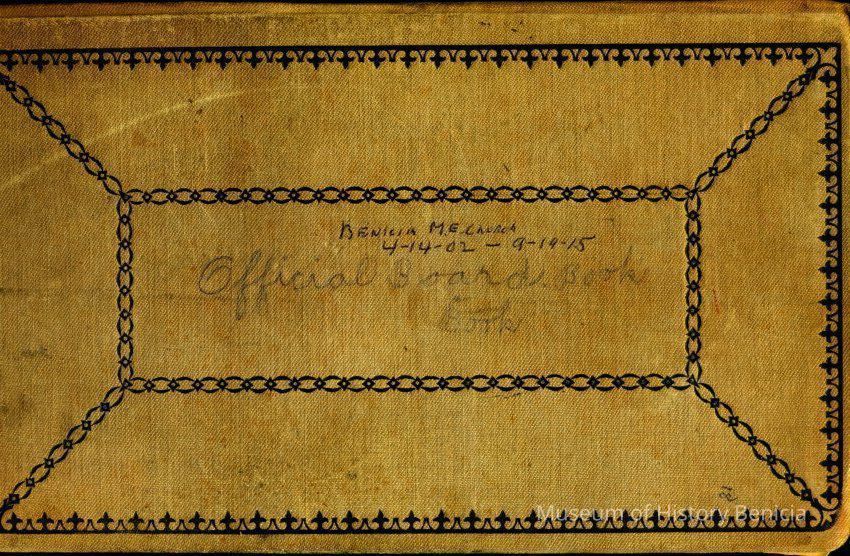 BENICIA M.E. CHURCH
4-14-02 - 9-19-15
Official Board Book
Book
Museum of History Benicia